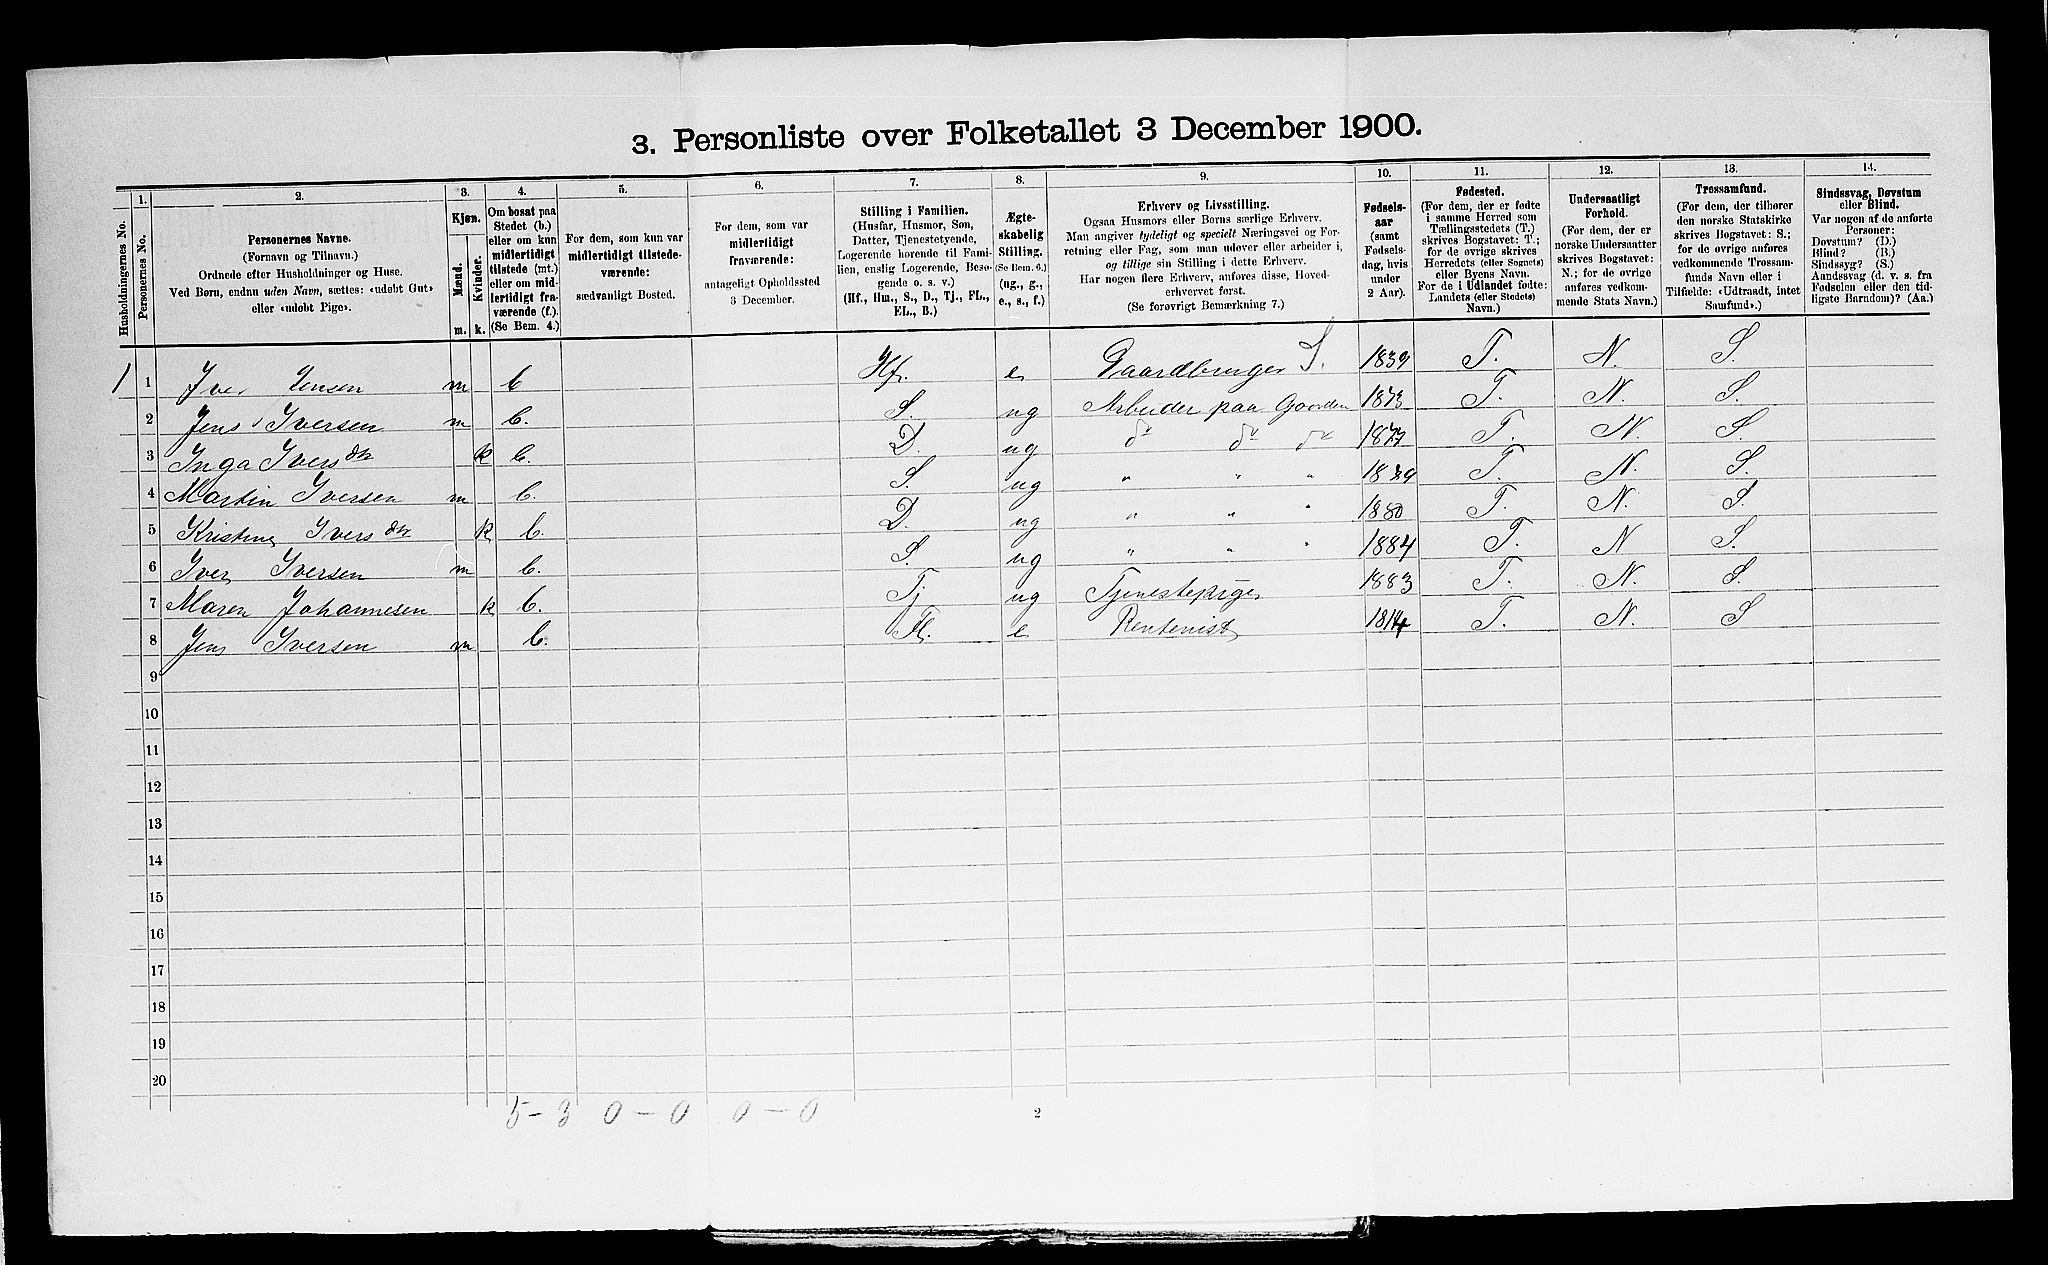 3. Personliste over Folketallet 3 December 1900.
Husholdningernes No.
1.
Personernes No.
2.
Personernes Navne.
(Fornavn og Tilnavn.)
Ordnede efter Husholdninger og Huse.
Ved Børn, endnu uden Navn, sættes: «udøbt Gut»
eller «udøbt Pige».
3.
Kjøn.
Mænd.
Kvinder.
m. k.
4.
Om bosat paa
Stedet (b.)
eller om kun
midlertidigt
tilstede (mt.)
eller om mid-
lertidigt fra-
værende (f.).
(Se Bem. 4.)
5.
For dem, som kun var
midlertidigt tilstede-
værende:
sædvanligt Bosted.
6.
For dem, som var
midlertidigt
fraværende:
antageligt Opholdssted
3 December.
7.
Stilling i Familien.
(Husfar, Husmor, Søn,
Datter, Tjenestetyende,
Logerende hørende til Fami-
lien, enslig Logerende, Besø-
gende o. s. v.)
(Hf., Hm., S., D., Tj., FL.,
EL., B.)
8.
Ægte-
skabelig
Stilling.
(Se Bem. 6.)
(ug., g.,
e., s., f.)
9.
Erhverv og Livsstilling.
Ogsaa Husmors eller Børns særlige Erhverv.
Man angiver tydeligt og specielt Næringsvei og For-
retning eller Fag, som man udøver eller arbeider i,
og tillige sin Stilling i dette Erhverv.
Har nogen flere Erhverv, anføres disse, Hoved-
erhvervet først.
(Se forøvrigt Bemærkning 7.)
10.
Fødsels-
aar
(samt
Fødsels-
dag, hvis
under
2 Aar).
11.
Fødested.
(For dem, der er fødte
i samme Herred som
Tællingsstedets (T.)
skrives Bogstavet: T.;
for de øvrige skrives
Herredets (eller Sognets)
eller Byens Navn.
For de i Udlandet fødte:
Landets (eller Stedets)
Navn.)
12.
Undersaatligt
Forhold.
(For dem, der er
norske Undersaatter
skrives Bogstavet:
N.; for de øvrige
anføres vedkom-
mende Stats Navn.)
13.
Trossamfund.
(For dem, der tilhører
den norske Statskirke
skrives Bogstavet: S.;
for de øvrige anføres
vedkommende Trossam-
funds Navn eller i
Tilfælde: «Udtraadt, intet
Samfund».)
14.
Sindssvag, Døvstum
eller Blind.
Var nogen af de anførte
Personer:
Døvstum? (D.)
Blind? (B.)
Sindssyg? (S.)
Aandssvag (d. v. s. fra
Fødselen eller den tid-
ligste Barndom)? (Aa.)
1 1 Iver Jensen m b Hf. e Gaardbruger S. 1839 T. N. S.
2 Jens Iversen m b. S. ug Arbeider paa Gaarden 1873 T. N. S.
3 Inga Iversdtr k b. D. ug do do do 1877 T. N. S.
4 Martin Iversen m b. S. ug " " " T. N. S.
5 Kristine Iversdtr k b. D. ug " " " 1880 T. N. S.
6 Iver Iversen m b. S. ug " " " 1884 T. N S.
7 Maren Johannesen k b. Tj ug Tjenestepige 1883 T. N. S.
8 Jens Iversen m b. Fl. e Rentenist 1814 T. N. S
9
10
11
12
13
14
15
16
17
18
19
20
5-3 0-0 0-0
2